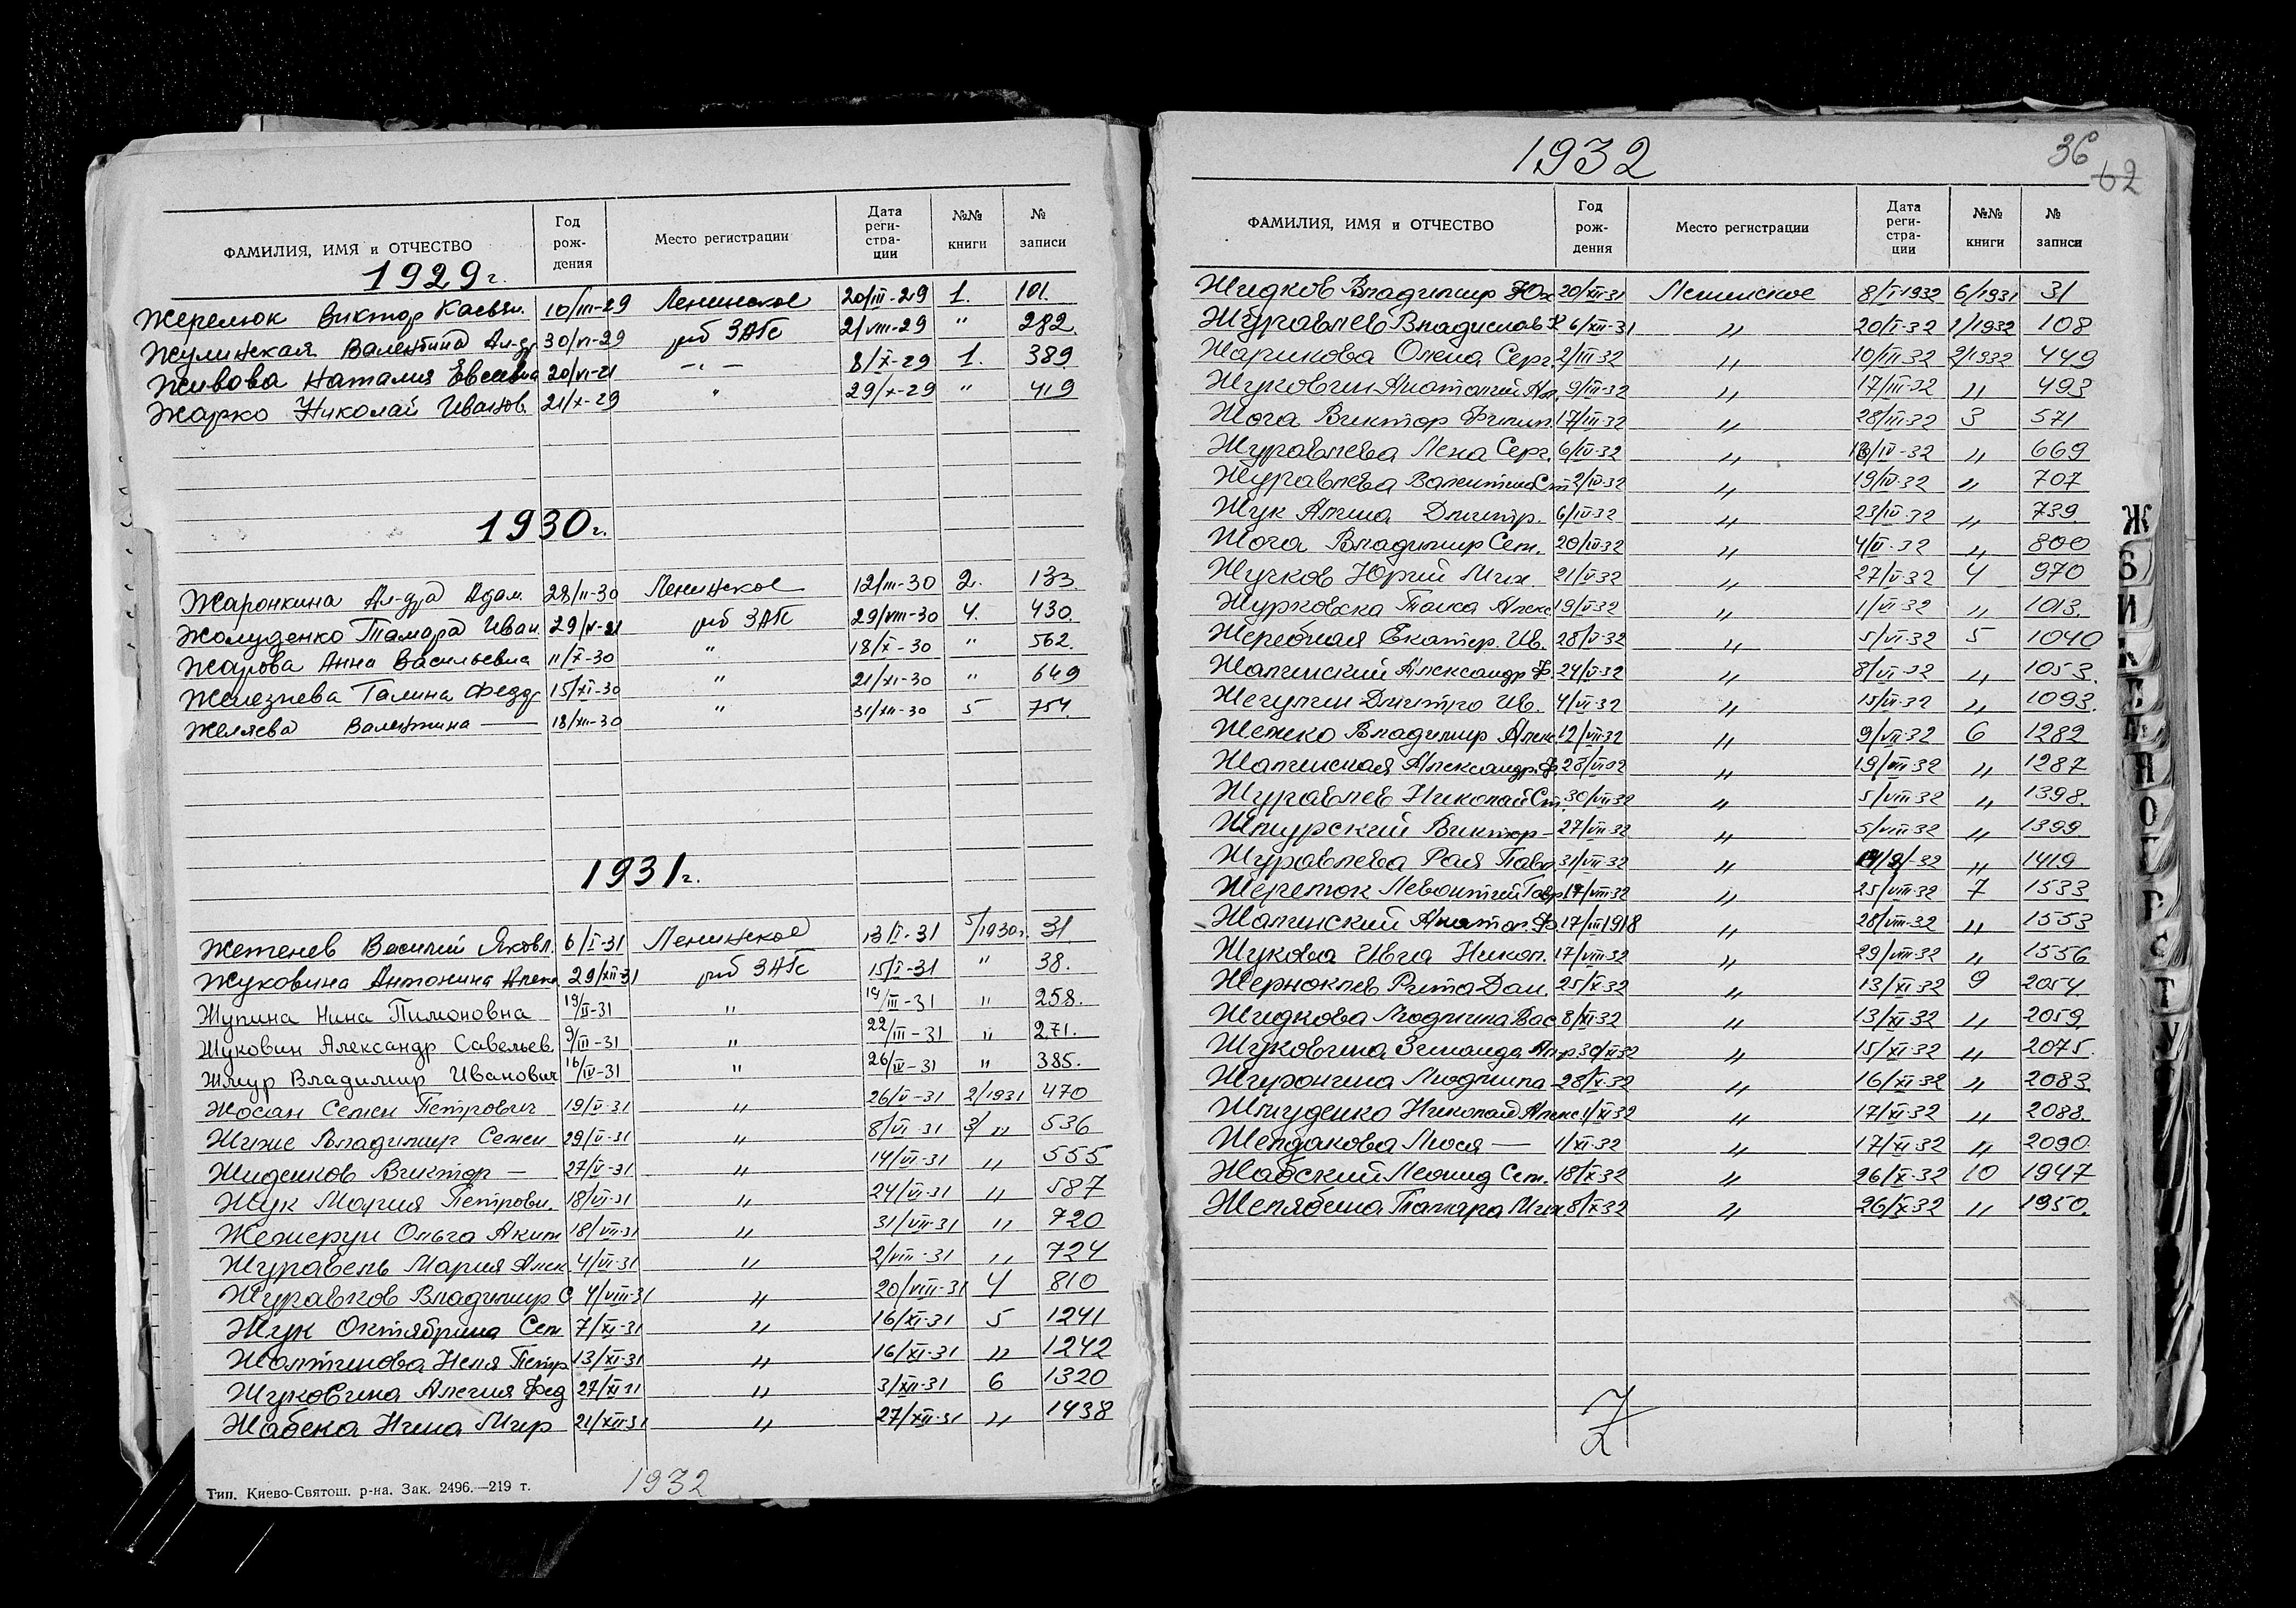 ФАМИЛИЯ, ИМЯ и ОТЧЕСТВО Год рож- дения Место регистрации Дата реги- стра- ции №№ книги № записи
1929г.
Жерелюк Виктор Касьян. 10/III-29 Ленинское 20/III-29 1. 101.
Жулинская Валентина Ал-др 30/VI-29 рб ЗАГс 2/VIII-29 " 282.
Живова Наталия Евсеевна 20/VI-21 —"— 8/X-29 1. 389
Жарко Николай Иванов. 21/X-29 " 29/X-29 " 419
1930г.
Жаронкина Ал-дра Адам. 28/II-30 Ленинское 12/III-30 2. 133
Жолуденко Тамара Иван. 29/VI-21 рб ЗАГс 29/VIII-30 4. 430.
Жарова Анна Васильевна 11/X-30 " 18/X-30 " 562.
Железнева Галина Федор 15/XI-30 " 21/XI-30 " 649
Желяева Валентина — 18/XII-30 " 31/XII-30 5 754.
1931г.
Жетенев Василий Яковл. 6/I-31 Ленинское 13/I-31 5/1930г. 31
Жуковина Антонина Алекс 29/XII-31 рб ЗАГс 15/I-31 " 38.
Жупина Нина Пимоновна 19/II-31 " 19/III-31 " 258.
Жуковин Александр Савельев. 9/III-31 " 22/III-31 " 271.
Жмур Владимир Иванович 16/IV-31 " 26/IV-31 " 385.
Жосан Семен Петрович 19/V-31 " 26/V-31 2/1931 470
Жиже Владимир Семен 29/V-31 " 8/VI-31 3/" 536
Жиденков Виктор — 27/V-31 " 14/VI-31 " 555
Жук Мария Петровн. 18/VI-31 " 24/VI-31 " 587
Жежерун Ольга Аким 18/VII-31 " 31/VII-31 " 720
Журавель Мария Алек. 4/VI-31 " 2/VIII-31 " 724
Журавков Владимир С 4/VIII-31 " 20/VIII-31 4 810
Жук Октябрина Сем 7/XI-31 " 16/XI-31 5 1241
Жолтикова Неля Петр 13/XI-31 " 16/XI-31 " 1242
Жуковина Алегия Фед 27/XI-31 " 3/XII-31 6 1320
Жабека Нина Мир 21/XII-31 " 27/XII-31 " 1438
Тип. Киево-Святош. р-на. Зак. 2496.—219 т.
1932
1932
36
62
ФАМИЛИЯ, ИМЯ и ОТЧЕСТВО Год рож- дения Место регистрации Дата реги- стра- ции №№ книги № записи
Жидков Владимир Юх 20/XII-31 Ленинское 8/I-1932 6/1931 31
Журавлев Владислав Х 6/XII-31 " 20/I-32 1/1932 108
Жарикова Олена Серг. 2/III-32 " 10/III-32 2/1932 449
Жуковин Анатолий Ал. 9/III-32 " 17/III-32 " 493
Жога Виктор Филип. 17/III-32 " 28/III-32 3 571
Журавлева Лена Серг. 6/IV-32 " 13/IV-32 " 669
Журавлева Валентина Ст 2/IV-32 " 19/IV-32 " 707
Жук Алина Дмитр. 6/IV-32 " 23/IV-32 " 739
Жога Владимир Сем. 20/IV-32 " 4/V-32 " 800
Жучков Юрий Мих 21/V-32 " 27/V-32 4 970
Журковска Таиса Алекс 19/V-32 " 1/VI-32 " 1013.
Жеребная Екатер. Ив. 28/V-32 " 5/VI-32 5 1040
Жалинский Александр Ф. 24/V-32 " 8/VI-32 " 1053.
Жегулин Дмитро Ив. 4/VI-32 " 15/VI-32 " 1093.
Жежко Владимир Алек. 12/VII-32 " 9/VII-32 6 1282
Жалинская Александр. Ф. 28/VI-32 " 19/VII-32 " 1287
Журавлев Николай Ст. 30/VII-32 " 5/VIII-32 " 1398.
Жмурский Виктор — 27/VII-32 " 5/VIII-32 " 1399
Журавлева Рая Павл. 31/VII-32 " -32 " 1419
Жерелюк Левонтий Гавр 17/VIII-32 " 25/VIII-32 7 1533
Жалинский Анатол. Ф. 17/III1918 " 28/VIII-32 " 1553
Жукова Ивга Никол. 17/VIII-32 " 29/VIII-32 " 1556
Жерноклев Рита Дан. 25/X-32 " 13/XI-32 9 2054
Жидкова Людмила Вас 8/XI-32 " 13/XI-32 " 2059.
Жуковина Зинаида Андр 30/XI-32 " 15/XI-32 " 2075.
Журонкина Людмила — 28/X-32 " 16/XI-32 " 2083
Жмуденко Николай Алекс 1/XI-32 " 17/XI-32 " 2088.
Желдакова Люся — 1/XI-32 " 17/XI-32 " 2090.
Жабский Леонид Сем. 18/X-32 " 26/X-32 10 1947
Желябина Тамара Мих. 8/X-32 " 26/X-32 " 1950.
7/2
Ж
З
И
К
Л
М
Н
О
П
Р
С
Т
У